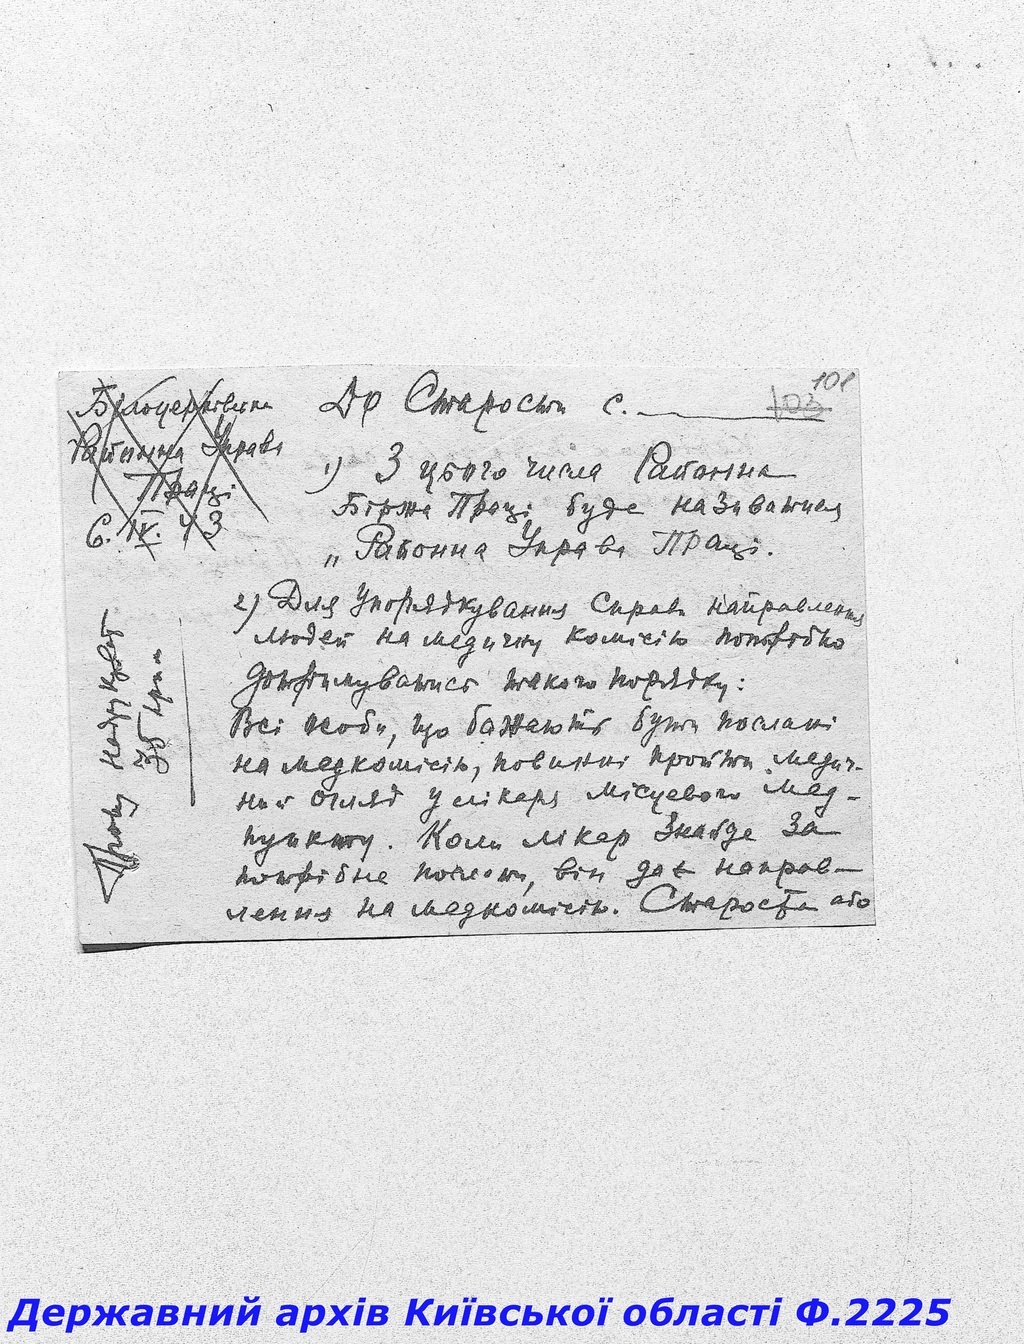 Білоцерківська
Районна Управа
Праці
6. IV. 43
До Старости с.
101
103
1) З цього числа Районна
Біржа Праці буде називатися
„Районна Управа Праці.
2) Для упорядкування справи направлення
людей на медичну комісію потрібно
дотримуватись такого порядку:
Всі особи, що бажають бути послані
на медкомісію, повинні пройти медич-
ний огляд у лікаря місцевого мед-
пункту. Коли лікар знайде за
потрібне послати, він дає направ-
лення на медкомісію. Староста або
Прошу надрукуват
35 прим
Державний архів Київської області Ф.2225